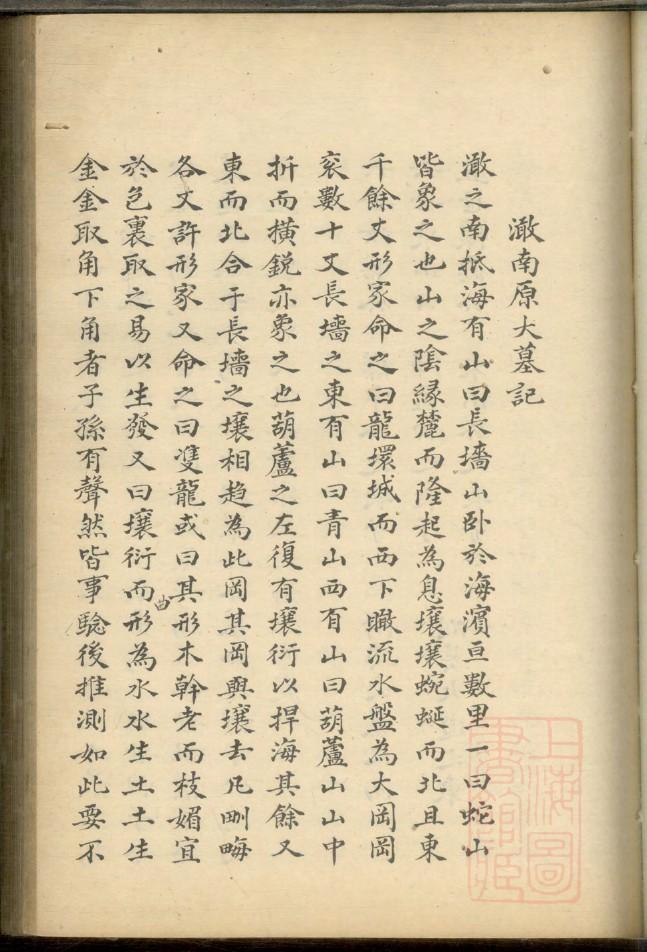 澉南原大墓記
澉之南抵海有山曰長墻山卧於海濱亘數里一曰蛇山
皆象之也山之陰緣麓而隆起為息壤壤蜿蜒而北且東
千餘丈形家命之曰龍環城而西下瞰流水盤為大岡岡
袤數十丈長墻之東有山曰青山西有山曰葫蘆山山中
折而橫銳亦象之也葫蘆之左復有壤衍以捍海其餘又
東而北合于長墻之壤相趋為此岡其岡與壤去凡甽畮
各丈許形家又命之曰雙龍或曰其形木幹老而枝媚宜
於色裏取之易以生發又曰壤衍而形曲為水水生土土生
金金取角下角者子孫有聲然皆事驗後推測如此要不
上海圖書館藏